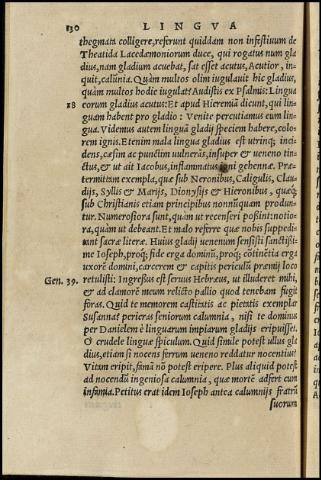 130 LINGVA
thegmata colligere, referunt quiddam non infestiuum de
Theatida Lacedæmoniorum duce, qui rogatus num gla
dius, nam gladium acuebat, sat esset acutus, Acutior, in-
quit, calūnia. Quàm multos olim iugulauit hic gladius,
quàm multos hodie iugulat? Audistis ex Psalmis: Lingua
18 eorum gladius acutus: Et apud Hieremiā dicunt, qui lin-
guam habent pro gladio: Venite percutiamus eum lin-
gua. Videmus autem linguā gladij speciem habere, colo-
rem ignis. Etenim mala lingua gladius est utrinq; inci-
dens, cæsim ac punctim uulnerās, insuper & ueneno tin-
ctus, & ut ait Iacobus, inflammatus igni gehennæ. Præ-
termittam exempla, quæ sub Neronibus, Caligulis, Clau-
dijs, Syllis & Marijs, Dionysijs & Hieronibus, quæq;
sub Christianis etiam principibus nonnūquam produn-
tur. Numerosiora sunt, quàm ut recenseri possint: notio-
ra, quàm ut debeant. Et malo referre quæ nobis suppedi-
tant sacræ literæ. Huius gladij uenenum sensisti sanctissi-
me Ioseph, proq; fide erga dominū, proq; cōtinētia erga
uxorē domini, carcerem & capitis periculū præmij loco
Gen. 39. retulisti: Ingressus est seruus Hebræus, ut illuderet mihi,
& ad clamorē meum relicto pallio quod tenebam fugit
foras. Quid te memorem castitatis ac pietatis exemplar
Susanna? perieras seniorum calumnia, nisi te dominus
per Danielem è linguarum impiarum gladijs eripuisset.
O crudele linguæ spiculum. Quid simile potest ullus gla
dius, etiam si nocens ferrum ueneno reddatur nocentius?
Vitam eripit, famā nō potest eripere. Plus aliquid potest
ad nocendū ingeniosa calumnia, quæ mortē adfert cum
infamia. Petitus erat idem Ioseph antea calumnijs fratrū
suorum